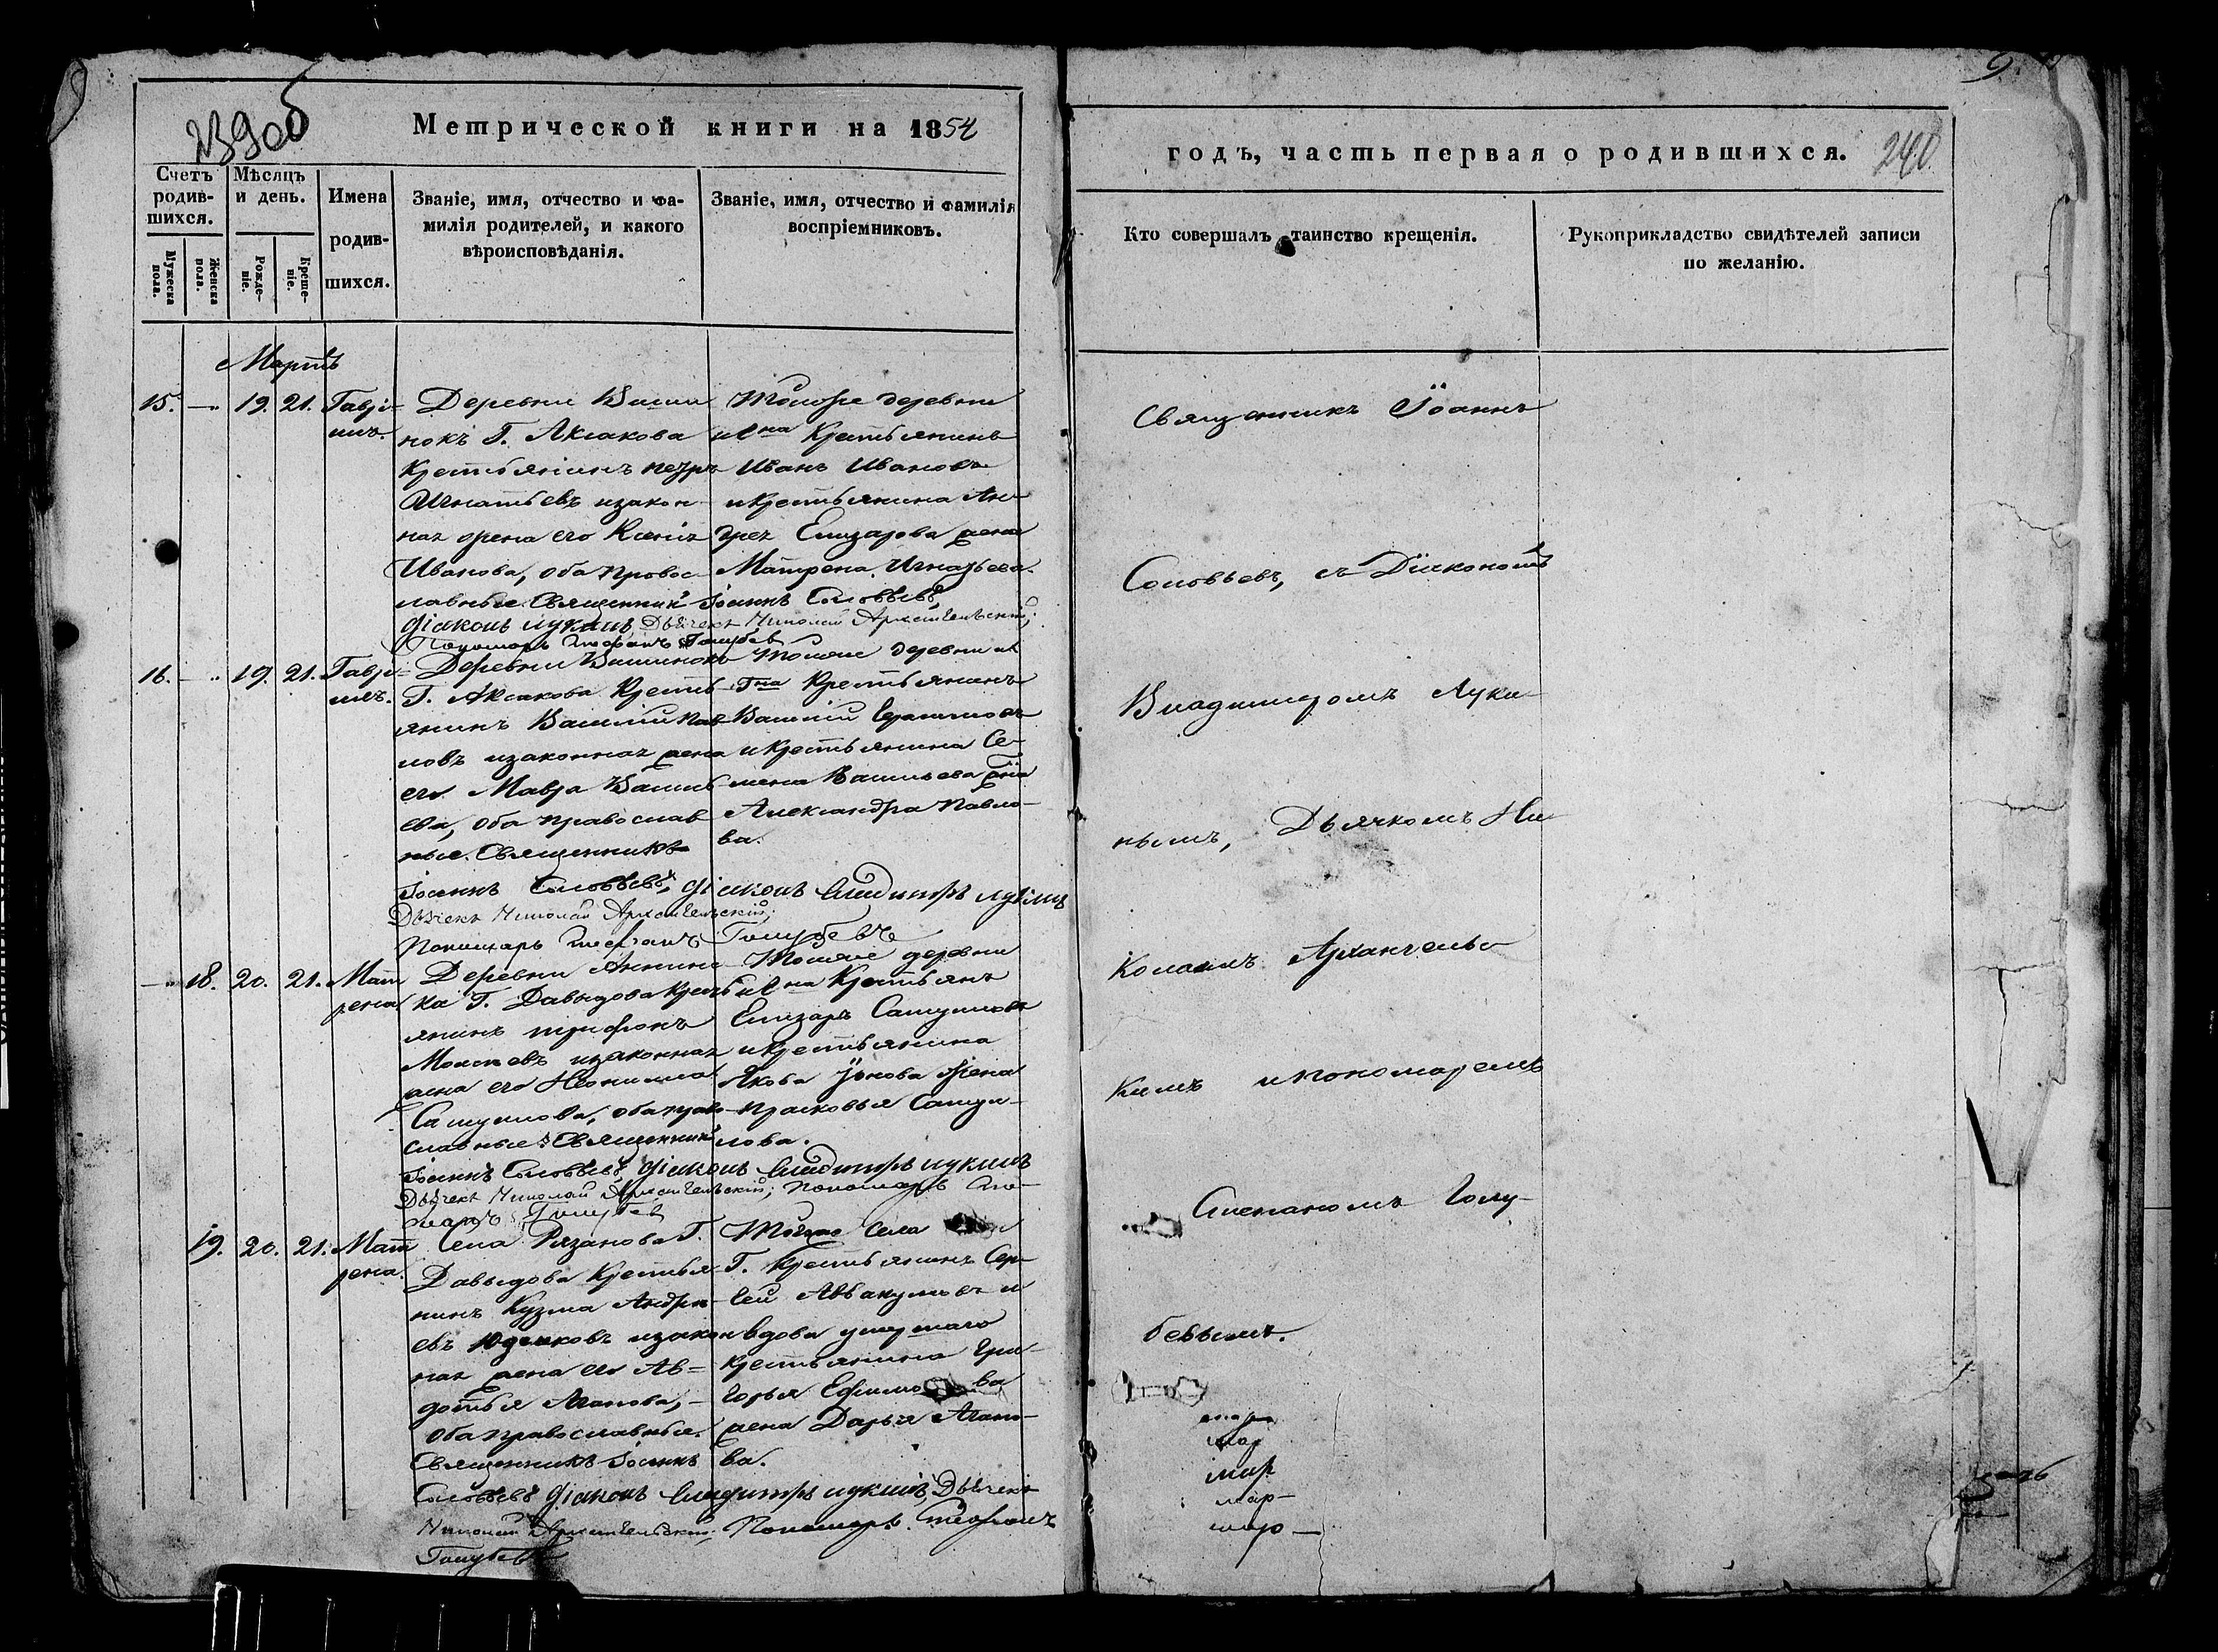 239об
Метрической книги на 1854
Счетъ родив-шихся.
Мужеска пола.
Женска пола.
Мѣсяцъ и день.
Рожде-ніе.
Креще-ніе.
Имена
родив-
шихся.
Званіе, имя, отчество и фа-
милія родителей, и какого
вѣроисповѣданія.
Званіе, имя, отчество и фамилія
воспріемниковъ.
Мартъ
15. — 19. 21. Гаврі-
илъ.
Деревни
нокъ Г. Аксакова
Крестьянинъ Петръ
Игнатьевъ изакон-
ная жена его Ксенія
Иванова, оба право-
славные. Священникъ Іоаннъ Соловьевъ,
діаконъ Лукинъ, Дьячекъ Николай Архангельскій,
Пономарь Стефанъ Голубев
Тойже деревни
иГна Крестьянинъ
Иванъ Ивановъ
икрестьянина Ан-
дрея Елизарова жена
Матрена Игнатьева.
16. — 19. 21. Гаврі-
илъ.
Деревни
Г. Аксакова Кресть-
янинъ Василий Пав-
ловъ изаконная жена
его Мавра Василь-
ева, оба православ-
ные. Священникъ
Іоаннъ Соловьевъ, діаконъ Владимиръ Лукинъ
Дьячекъ Николай Архангельскій,
Пономарь Стефанъ Голубевъ
Тойже деревни и
Гна Крестьянинъ
Василій
икрестьянина Се-
мена Васильева жена
Александра Павло-
ва.
— 18. 20. 21. Мат
рена
Деревни Аннин-
ка Г. Давыдова Крест-
янинъ Трифонъ
Моисеевъ изаконная
жена его Неонила
Самуилова, оба право-
славные. Священникъ
Іоаннъ Соловьевъ, діаконъ Владимиръ Лукинъ
Дьячекъ Николай Архангельскій, Пономарь Сте-
фанъ Голубев
Тойже деревни
иГна Крестьянъ
Елизаръ Самуиловъ
икрестьянина
Якова Іонова жена
Прасковья Самуи-
лова.
19. 20. 21. Мат
рена.
Села Рязанова Г.
Давыдова Крестья-
нинъ Кузма Андре-
евъ изакон-
ная жена его Ав=
дотья Агапова,
оба православные.
Священникъ Іоаннъ
Соловьевъ діаконъ Владимиръ Лукинъ, Дьячекъ
Николай Архангельский, Пономарь Стефанъ
Голубевъ
Тогоже села
Г. Крестьянинъ Сер-
гей Аввакумовъ и
вдова умершаго
крестьянина Гри-
горья Ефимова
жена Дарья Агапо-
ва.
годъ, часть первая о родившихся.
240
Кто совершалъ таинство крещенія.
Рукоприкладство свидѣтелей записи
по желанію.
Священникъ Іоаннъ
Соловьевъ, съ Діакономъ
Владимиромъ Луки-
нымъ, Дьячкомъ Ни-
колаемъ Архангельс-
кимъ и пономаремъ
Стефаномъ Голу-
бевымъ.
мар
мар
мар-
мар-